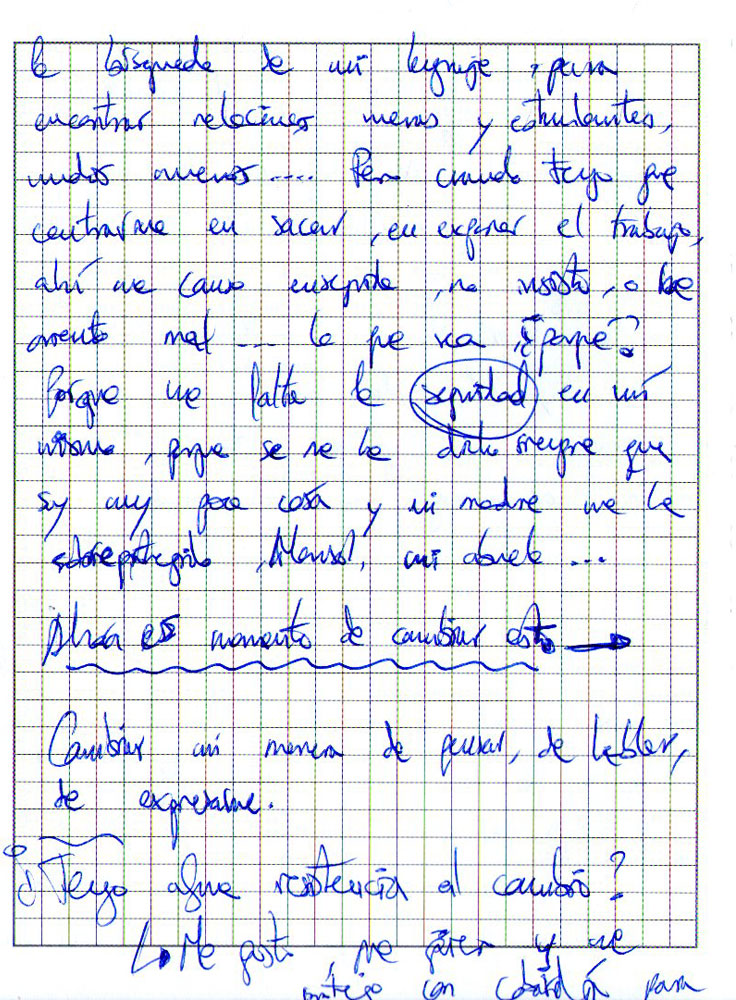 la búsqueda de mi lenguaje, para
encontrar relaciones nuevas y estimulantes,
mundos nuevos.... Pero cuando tengo que
centrarme en sacar, en exponer el trabajo,
ahí me canso enseguida, no insisto, o me
siento mal --- lo que sea ¿porqué?
Porque me falta la seguridad en mí
misma, porque se me ha dicho siempre que
soy muy poca cosa y mi madre me ha
sobreprotegido, mi abuela ...
Ahora es momento de cambiar esto →
Cambiar mi manera de pensar, de hablar,
de expresarme.
¿Tengo alguna resistencia al cambio?
↳ Me gusta, me y me
protejo con para